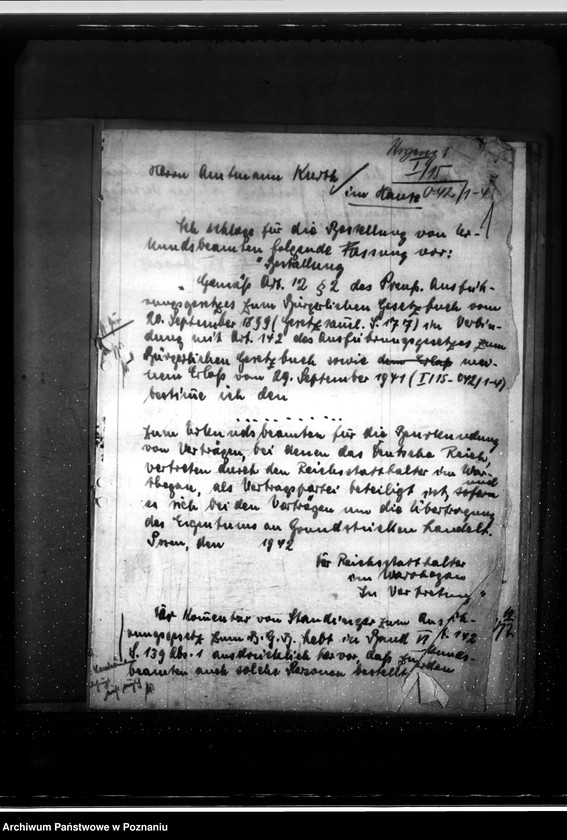 I/15
Herrn Amtmann Kurth
im Hause 042/1-4
Ich schlage für die Bestellung von Ur-
kundsbeamten folgende Fassung vor:
"Bestellung
" Gemäß Art. 12 § 2 des Preuß. Ausfüh-
rungsgesetzes zum Bürgerlichen Gesetzbuch vom
20. September 1899 (Gesetzsaml. S. 177) in Verbin-
dung mit Art. 142 des Ausführungsgesetzes zum
Bürgerlichen Gesetzbuch sowie dem Erlaß mei-
nem Erlaß vom 29. September 1941 (I/15-042/1-4)
bestime ich den
. . . . . . . . . .
zum Urkundsbeamten für die Beurkundung
von Verträgen, bei denen das Deutsche Reich,
vertreten durch den Reichsstatthalter im War-
thegau, als Vertragspartei beteiligt ist, und sofern
es sich bei den Verträgen um die Übertragung
des Eigentums an Grundstücken handelt.
Posen, den 1942
Der Reichsstatthalter
im Warthegau
In Vertretung "
Der Komentar von Staudinger zum Ausfüh-
rungsgesetz zum B.G.B. hebt in Band VI 142
S. 139 Abs. 1 ausdrücklich hervor, daß zu Urkunds-
beamten auch solche Personen bestellt werden
Archiwum Państwowe w Poznaniu